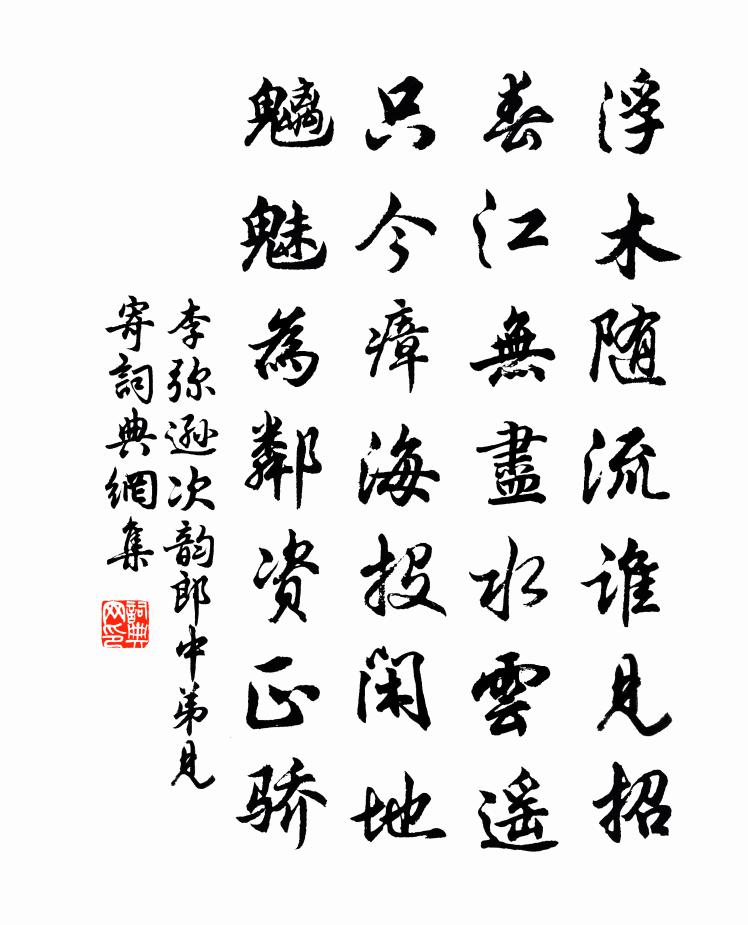 浮木随流谁見招
春江無盡水雲遥
只今瘴海投閑地
魑魅為鄰资正骄
李弥遜次韵郎中弟見
寄詞典網集
詞典网印